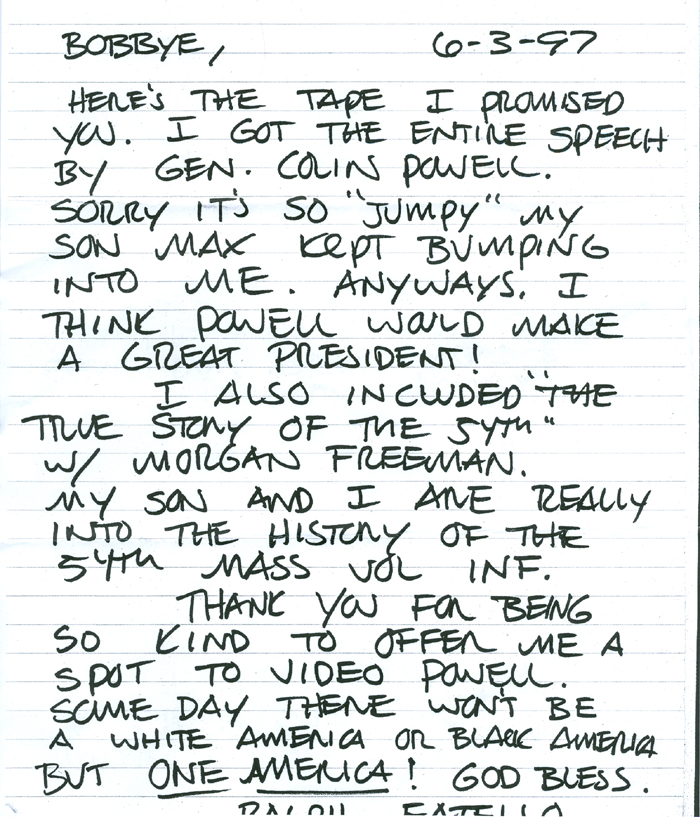 BOBBYE, 6-3-97
HERE'S THE TAPE I PROMISED
YOU. I GOT THE ENTIRE SPEECH
BY GEN. COLIN POWELL.
SORRY IT'S SO "JUMPY" MY
SON MAX KEPT BUMPING
INTO ME. ANYWAYS, I
THINK POWELL WOULD MAKE
A GREAT PRESIDENT!
I ALSO INCLUDED "THE
TRUE STORY OF THE 54TH"
W/ MORGAN FREEMAN.
MY SON AND I ARE REALLY
INTO THE HISTORY OF THE
54TH MASS VOL INF.
THANK YOU FOR BEING
SO KIND TO OFFER ME A
SPOT TO VIDEO POWELL.
SOME DAY THERE WON'T BE
A WHITE AMERICA OR BLACK AMERICA
BUT ONE AMERICA! GOD BLESS.
RALPH FATELLO